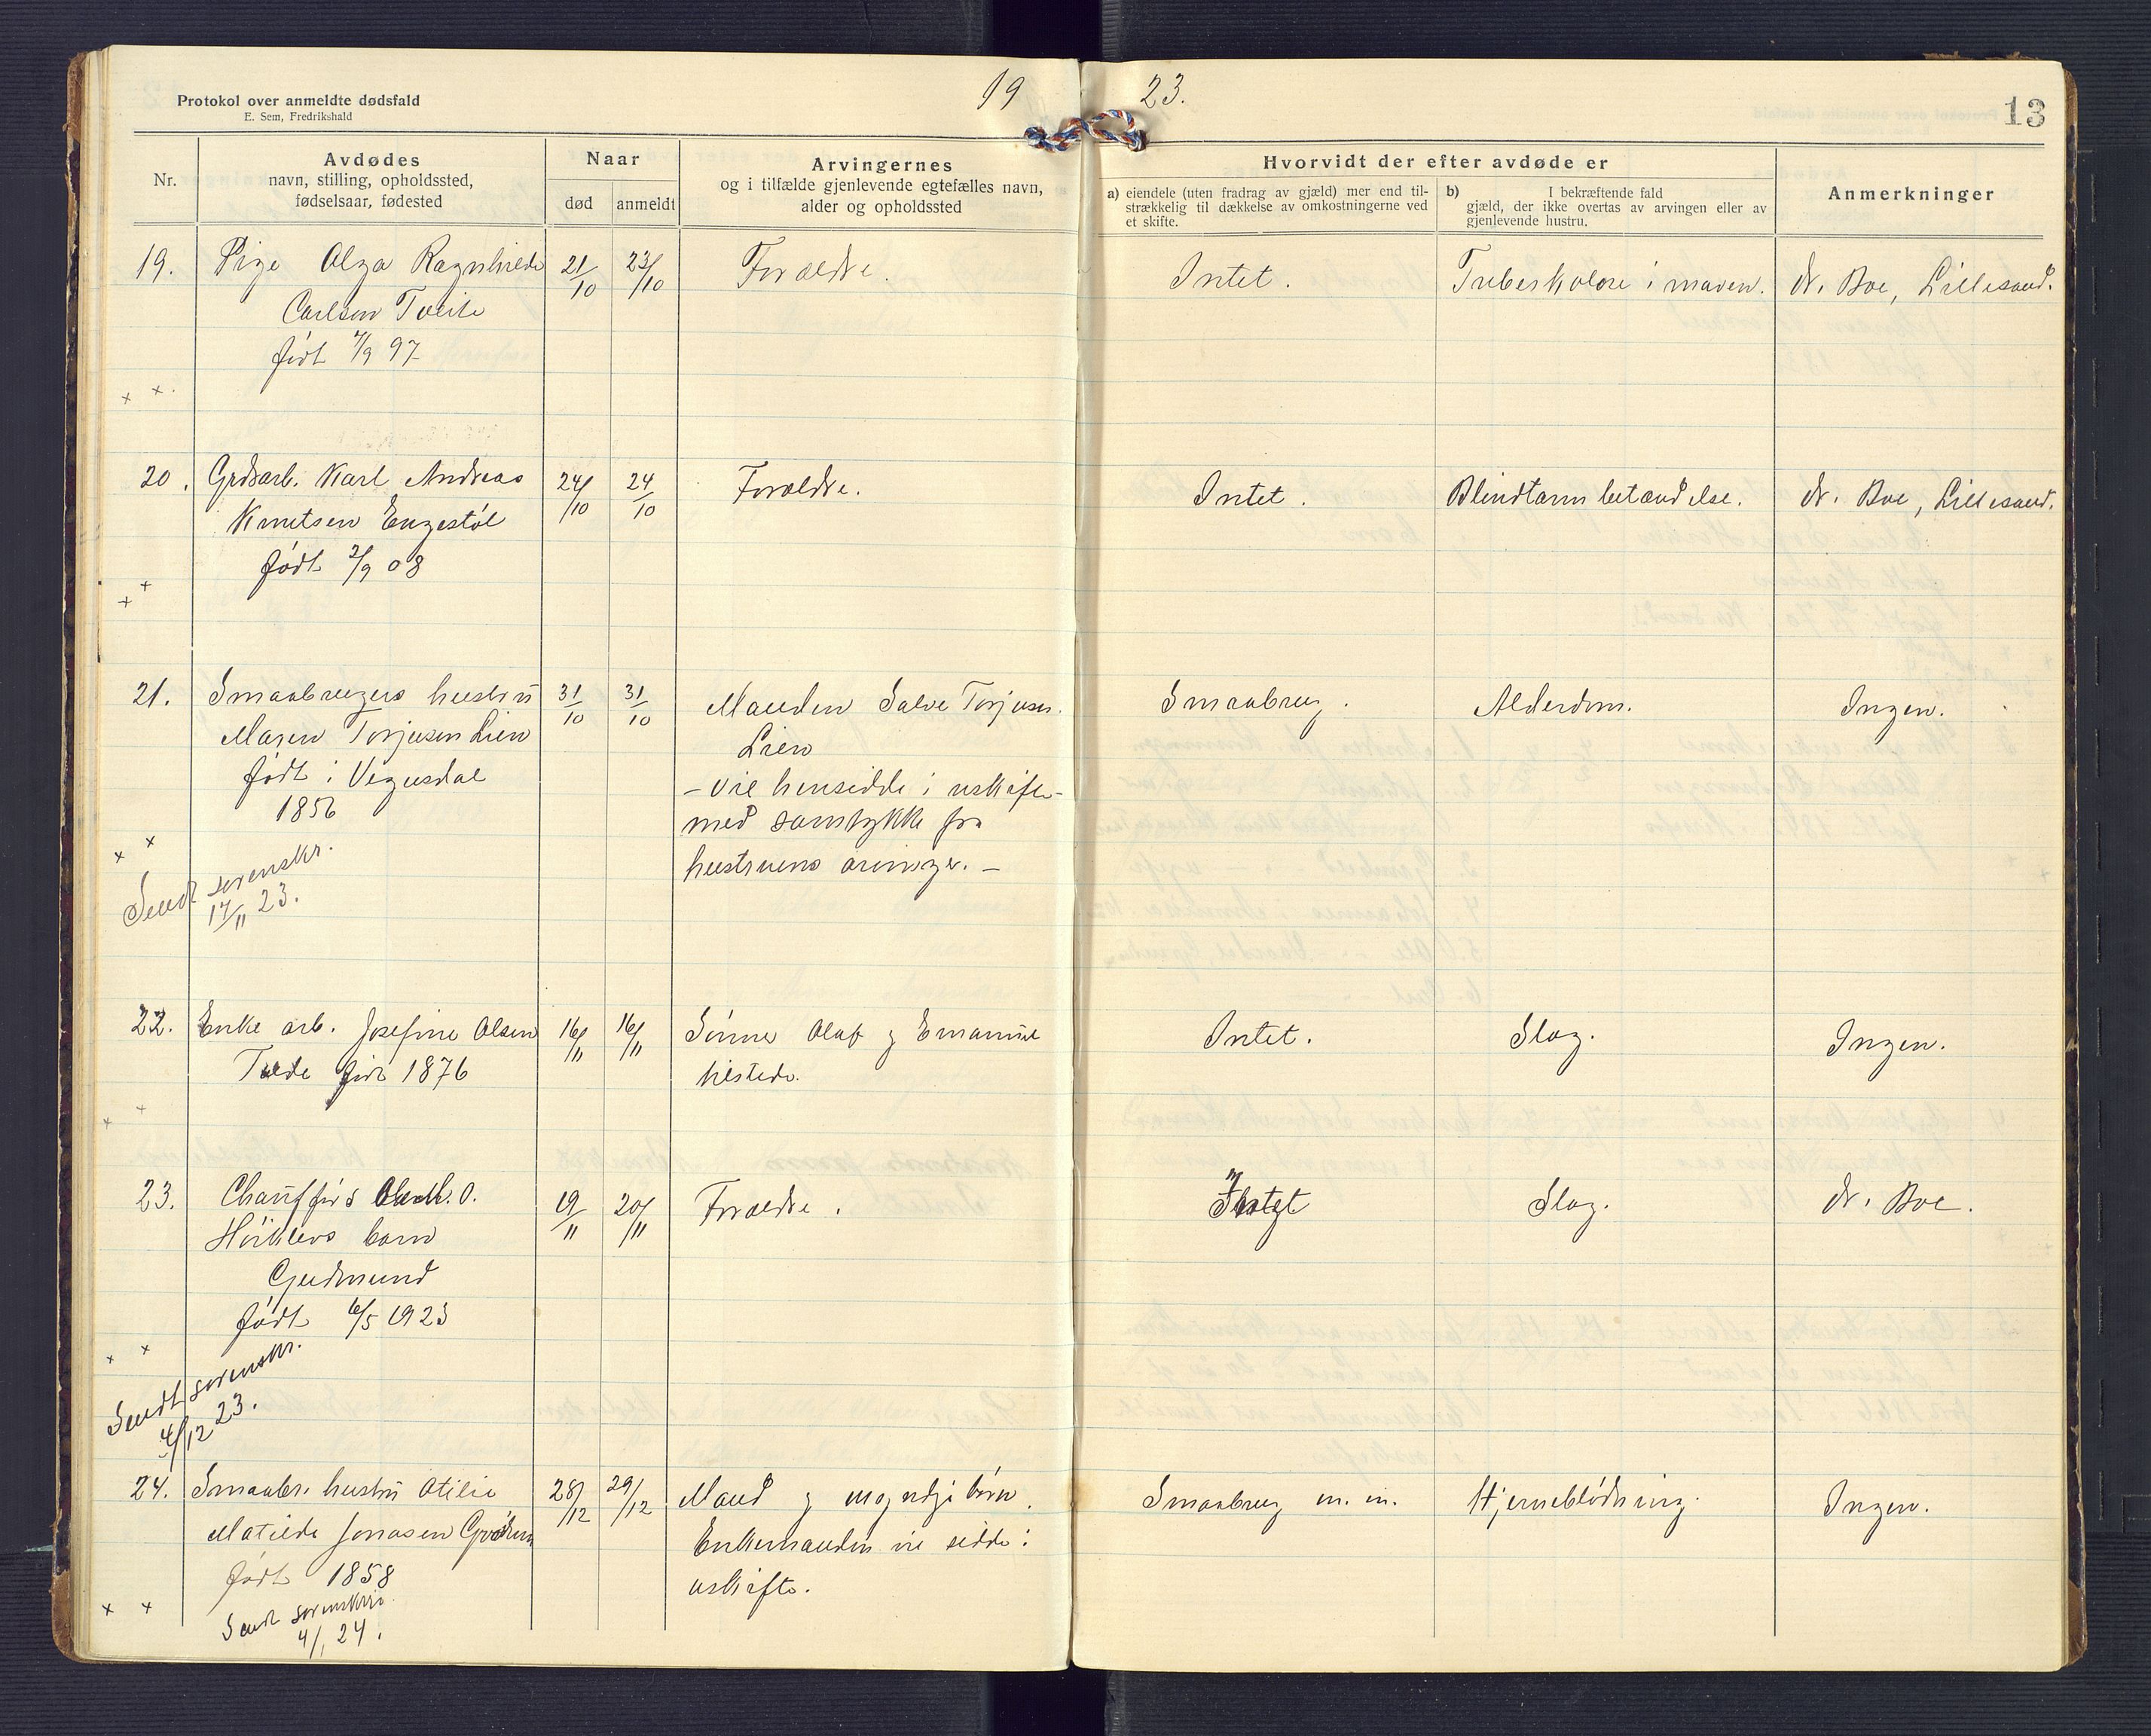 Protokol over anmeldte dødsfald
E. Sem, Fredrikshald
19 23.
13
Nr.
Avdødes
navn, stilling, opholdssted,
fødselsaar, fødested
Naar
død
anmeldt
Arvingernes
og i tilfælde gjenlevende egtefælles navn,
alder og opholdssted
Hvorvidt der efter avdøde er
a) eiendele (uten fradrag av gjæld) mer end til-
strækkelig til dækkelse av omkostningerne ved
et skifte.
b) I bekræftende fald
gjæld, der ikke overtas av arvingen eller av
gjenlevende hustru.
Anmerkninger
19. Pige Olga Ragnhilde
Carlsen Tveite
født 7/9 97
21/10
23/10
Forældre.
Intet.
Tuberkulose i maven.
Dr. Boe, Lillesand.
20. Grdsarb. Karl Andreas
Knutsen Engestøl
født 2/9 08
24/10
24/10
Forældre.
Intet.
Blindtarmbetændelse.
Dr. Boe, Lillesand.
21. Smaabrugers hustru
Maren Torjusen Lien
født i Vegusdal
1856
31/10
31/10
Manden Salve Torjusen
Lien
- vil hensidde i uskifte -
med samtykke fra
hustruens arvinger. -
Smaabrug.
Alderdom.
Ingen.
Sendt sorenskr.
17/11 23.
22. Enke arb. Josefine Olsen
Tvede født 1876
16/11
16/11
Sønner Olaf og Emanuel
hilsteds.
Intet.
Slag.
Ingen.
23. Chauffør O.
barn
Gudmund
født 6/5 1923
19/11
20/11
Forældre.
Intet
Slag.
Dr. Boe.
Sendt sorenskr.
4/12 23.
24. Smaabr. hustru Otilie
Matilde Jonasen
født 1858
28/12
29/12
Mand og myndje børn.
Enkemanden vil sidde i
uskifte.
Smaabrug m. m.
Hjerneblødning.
Ingen.
Sendt sorenskriv.
4/1 24.